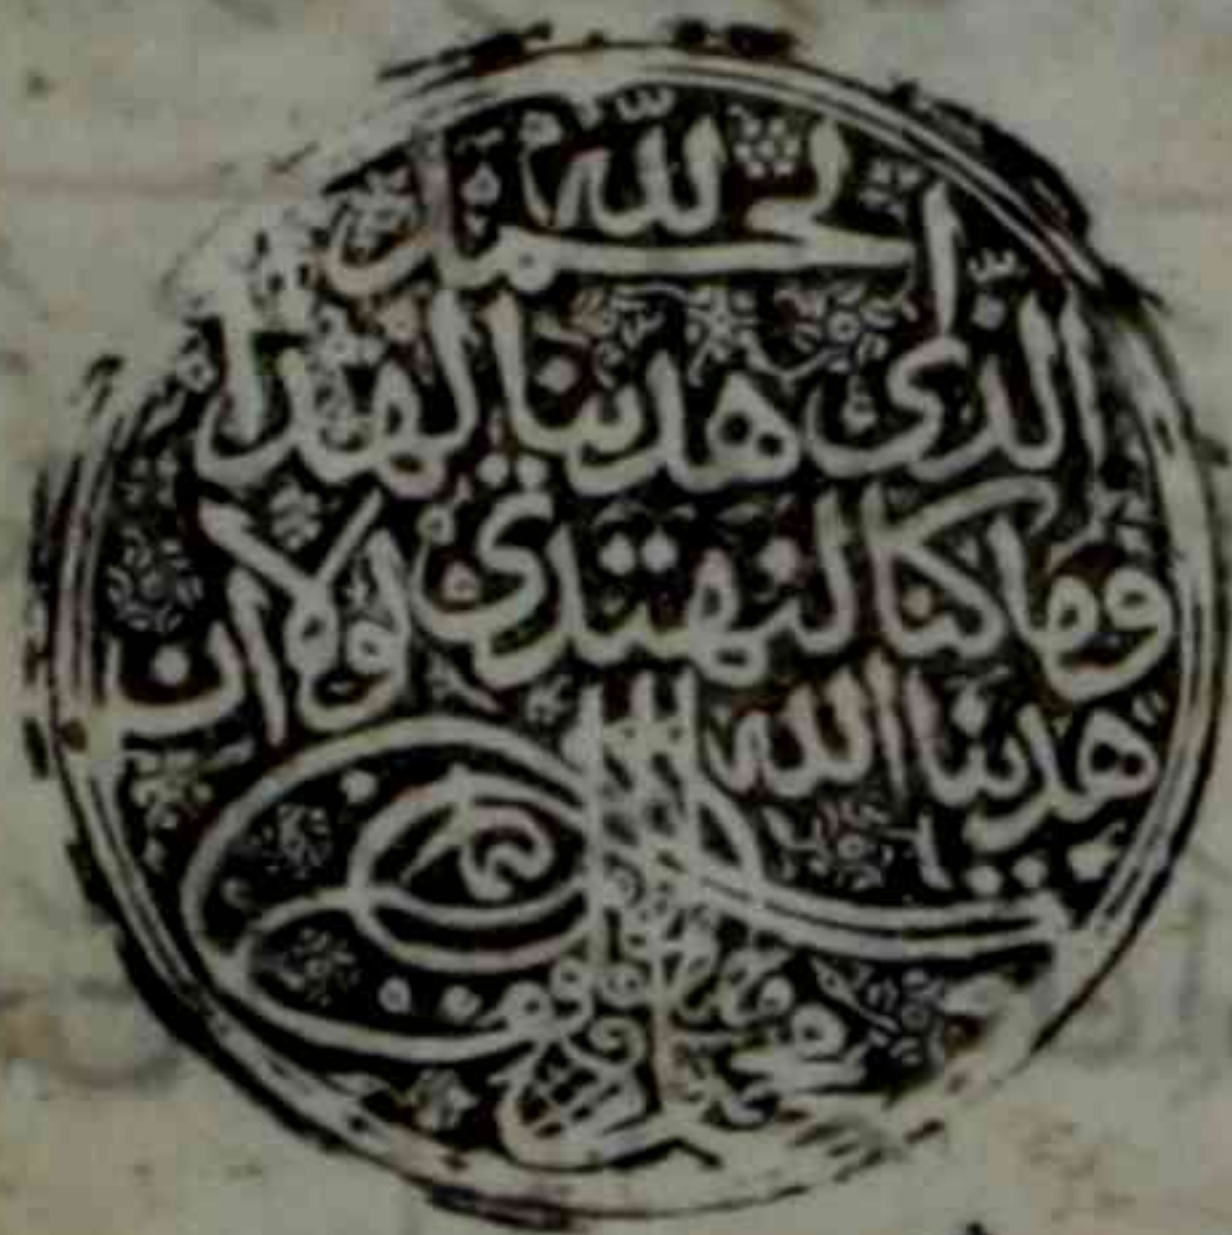 الحمد لله
الذی هدینا لهذا
وما كنا لنهتدی لولا ان
هدینا الله